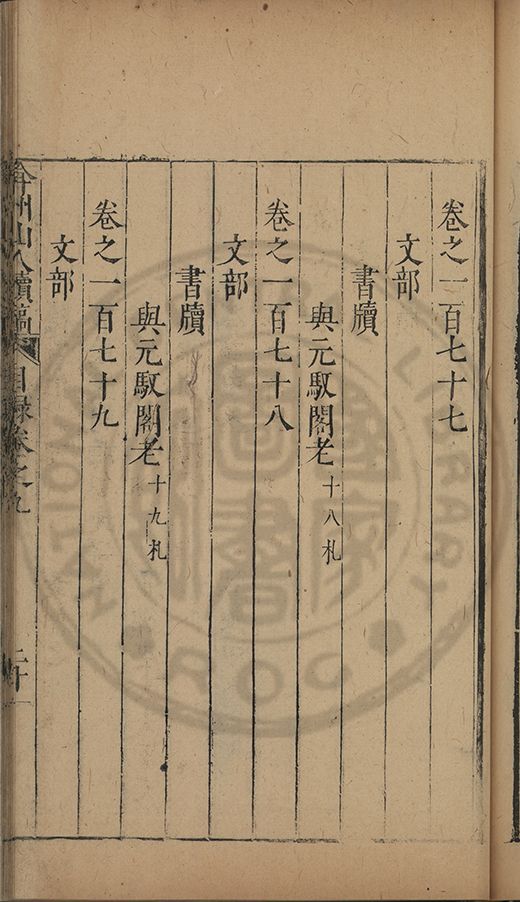 卷之一百七十七
文部
書牘
與元馭閣老十八札
卷之一百七十八
文部
書牘
與元馭閣老十九札
卷之一百七十九
文部
弇州山人續稿 目錄卷之九